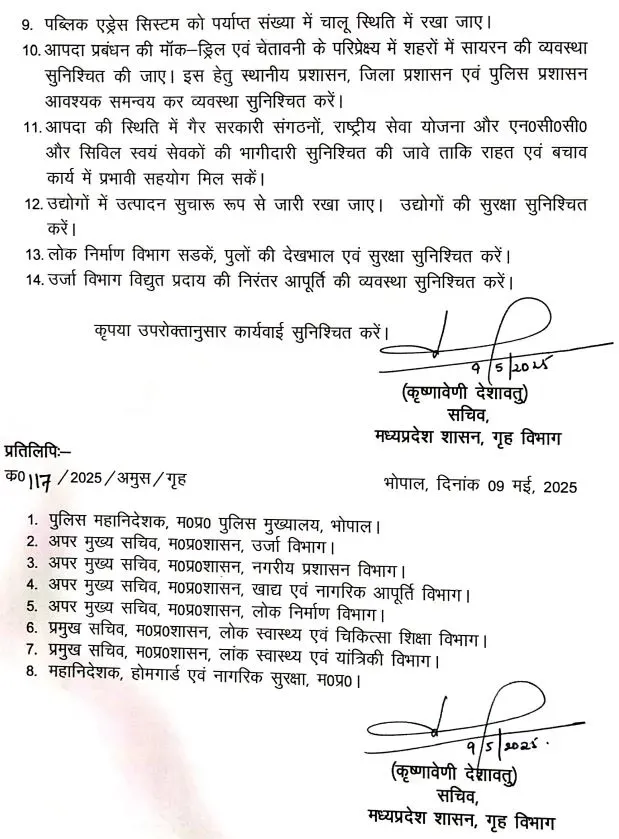 9. पब्लिक एड्रेस सिस्टम को पर्याप्त संख्या में चालू स्थिति में रखा जाए।
10. आपदा प्रबंधन की मॉक–ड्रिल एवं चेतावनी के परिप्रेक्ष्य में शहरों में सायरन की व्यवस्था
सुनिश्चित की जाए। इस हेतु स्थानीय प्रशासन, जिला प्रशासन एवं पुलिस प्रशासन
आवश्यक समन्वय कर व्यवस्था सुनिश्चित करें।
11. आपदा की स्थिति में गैर सरकारी संगठनों, राष्ट्रीय सेवा योजना और एन0सी0सी0
और सिविल स्वयं सेवकों की भागीदारी सुनिश्चित की जावे ताकि राहत एवं बचाव
कार्य में प्रभावी सहयोग मिल सकें।
12. उद्योगों में उत्पादन सुचारू रूप से जारी रखा जाए। उद्योगों की सुरक्षा सुनिश्चित
करें।
13. लोक निर्माण विभाग सडकें, पुलों की देखभाल एवं सुरक्षा सुनिश्चित करें।
14. उर्जा विभाग विद्युत प्रदाय की निरंतर आपूर्ति की व्यवस्था सुनिश्चित करें।
कृपया उपरोक्तानुसार कार्यवाई सुनिश्चित करें।
9/5/2025
(कृष्णावेणी देशावतु)
सचिव,
मध्यप्रदेश शासन, गृह विभाग
प्रतिलिपिः–
क0 117/2025/अमुस/गृह भोपाल, दिनांक 09 मई, 2025
1. पुलिस महानिदेशक, म0प्र0 पुलिस मुख्यालय, भोपाल।
2. अपर मुख्य सचिव, म0प्र0शासन, उर्जा विभाग।
3. अपर मुख्य सचिव, म0प्र0शासन, नगरीय प्रशासन विभाग।
4. अपर मुख्य सचिव, म0प्र0शासन, खाद्य एवं नागरिक आपूर्ति विभाग।
5. अपर मुख्य सचिव, म0प्र0शासन, लोक निर्माण विभाग।
6. प्रमुख सचिव, म0प्र0शासन, लोक स्वास्थ्य एवं चिकित्सा शिक्षा विभाग।
7. प्रमुख सचिव, म0प्र0शासन, लांक स्वास्थ्य एवं यांत्रिकी विभाग।
8. महानिदेशक, होमगार्ड एवं नागरिक सुरक्षा, म0प्र0।
9/5/2025.
(कृष्णावेणी देशावतु)
सचिव,
मध्यप्रदेश शासन, गृह विभाग